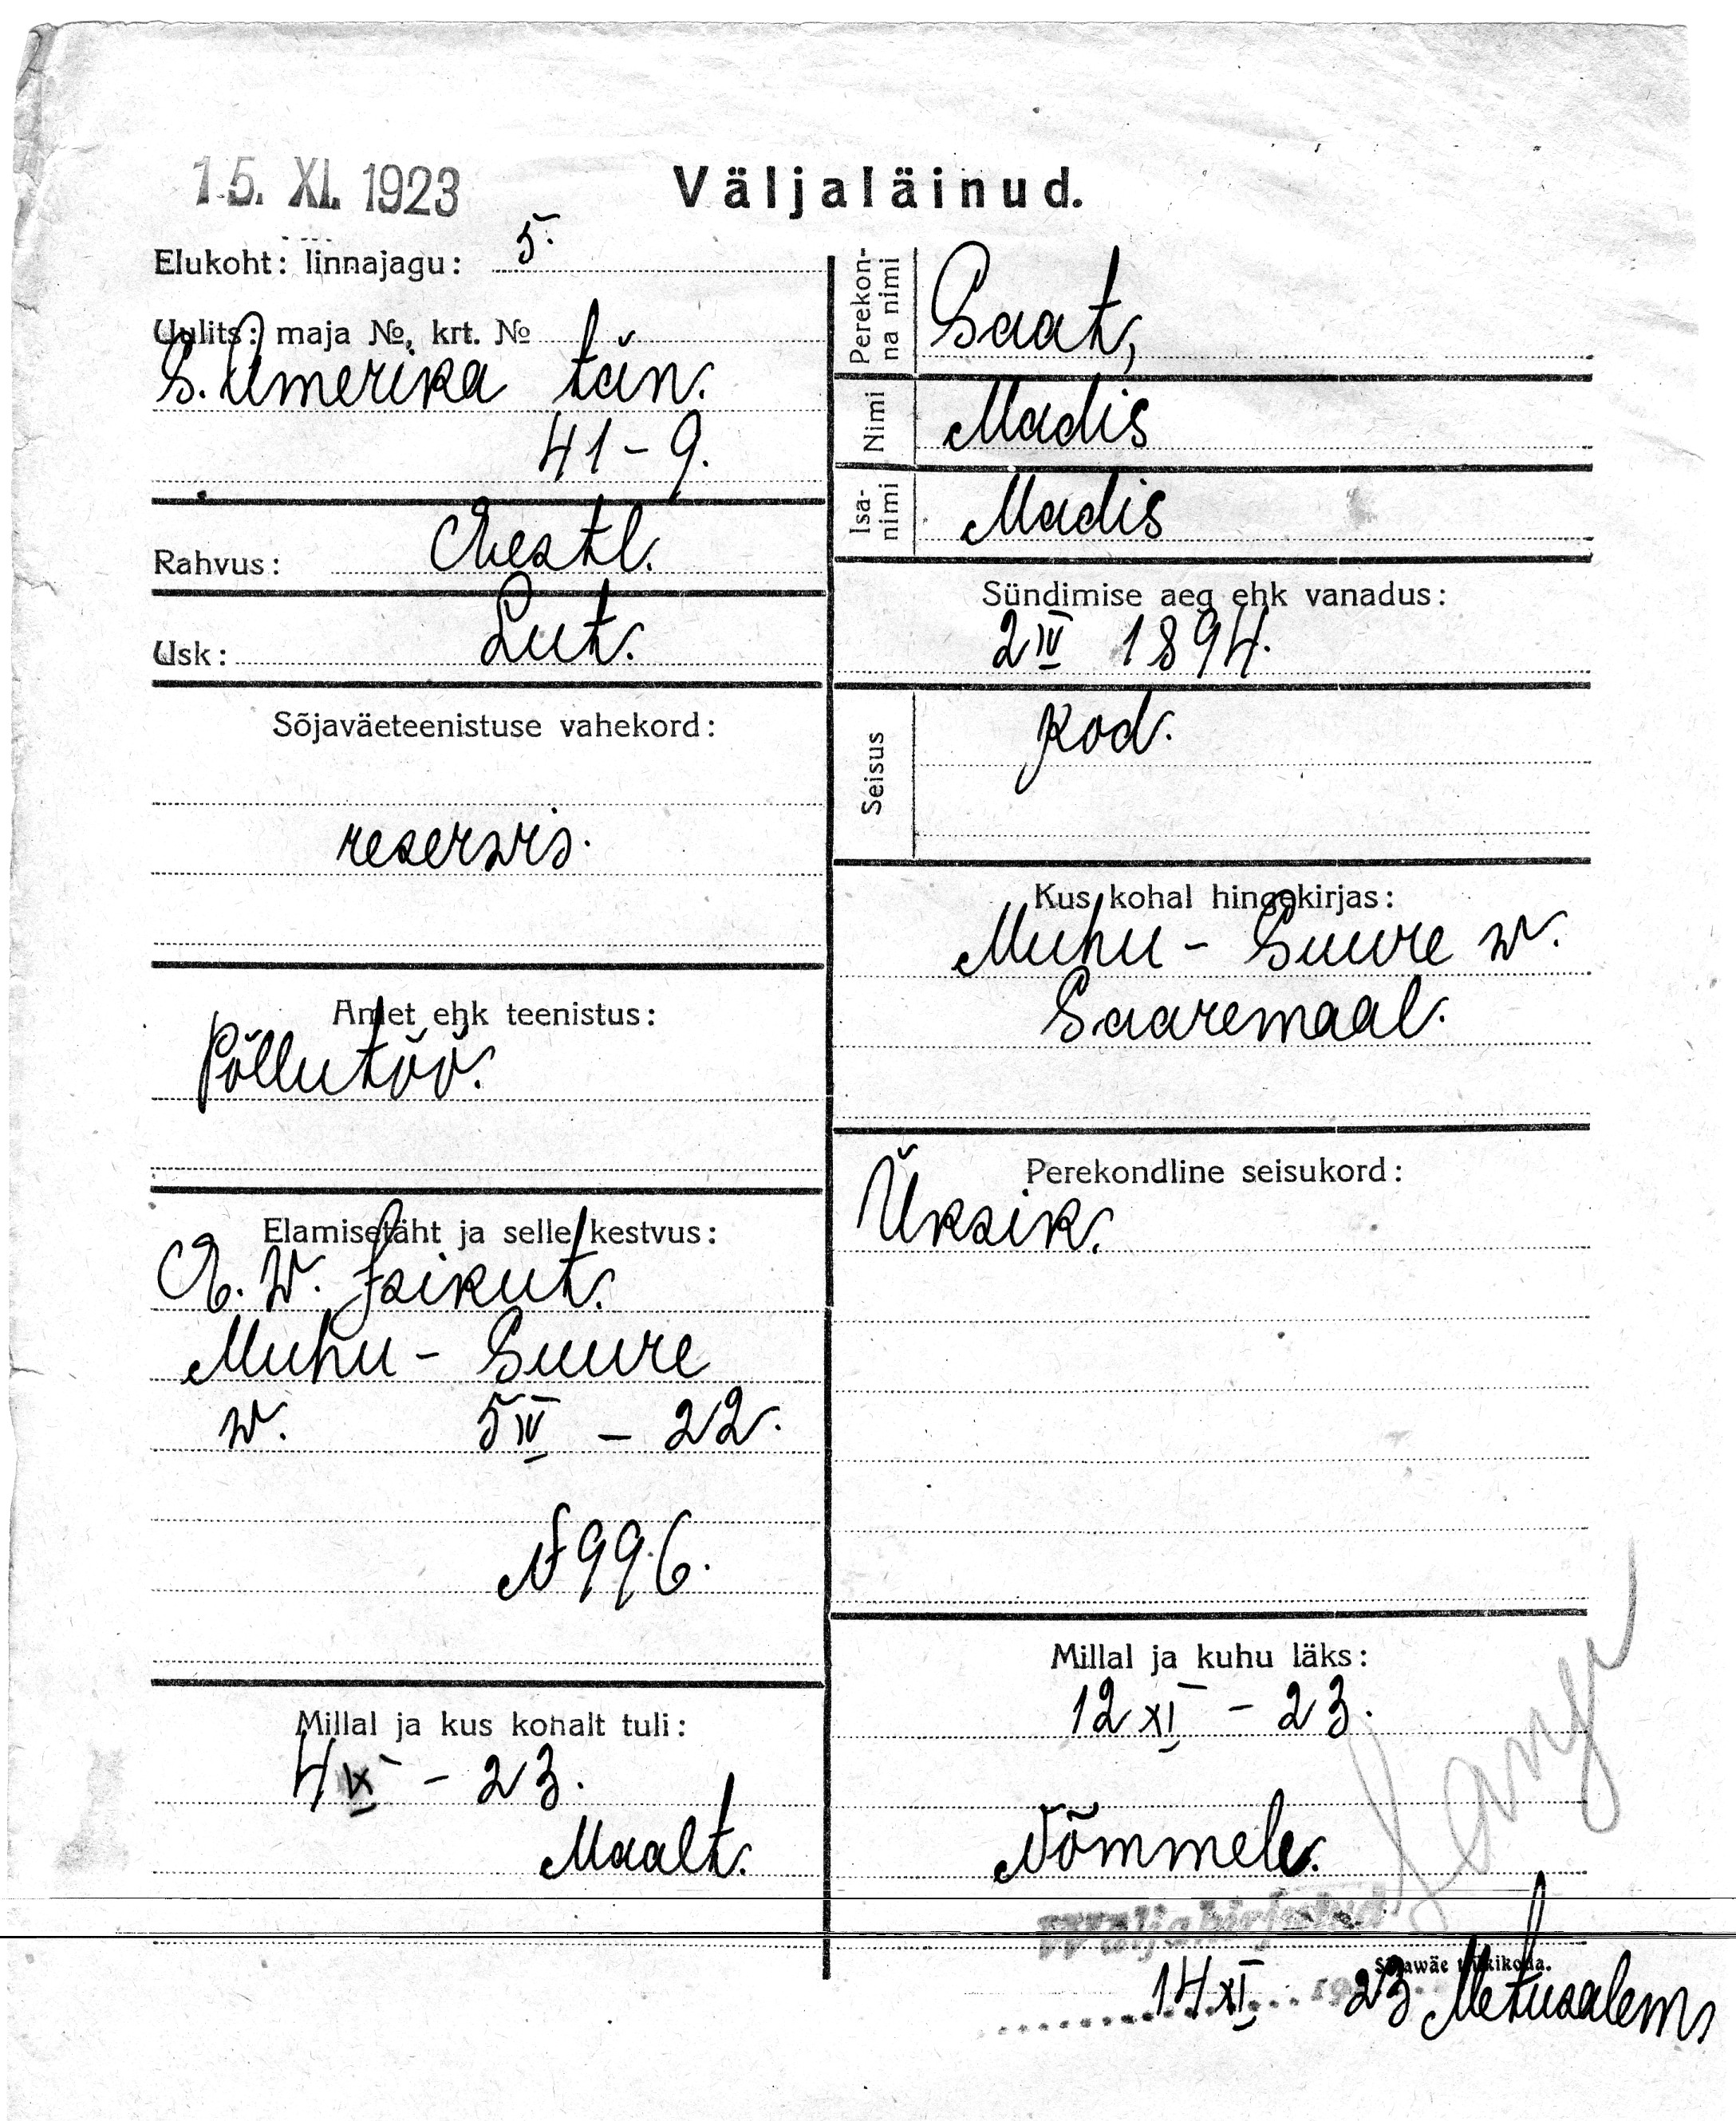 15. XI. 1923
Väljaläinud.
Elukoht: linnajagu: 5.
Uulits: maja №, krt. №
S. Amerika tän.
41-9.
Rahvus: Eestl.
Usk: Lut.
Sõjaväeteenistuse vahekord:
reservis.
Amet ehk teenistus:
Põllutöö.
Elamisetäht ja selle kestvus:
E. W. Isikut.
Muhu-Suure
w. 5 IV - 22.
N 996.
Millal ja kus kohalt tuli:
4 IX - 23.
Maalt.
Perekonna nimi
Saat,
Nimi
Madis
Isanimi
Madis
Sündimise aeg ehk vanadus:
2 IV 1894.
Seisus
kod.
Kus kohal hingekirjas:
Muhu-Suure w.
Saaremaal.
Perekondline seisukord:
Üksik.
Millal ja kuhu läks:
12 XI - 23.
Nõmmele.
Wäljakirjutud
Sõjawäe trükikoda.
14 XI 23 Metusalem